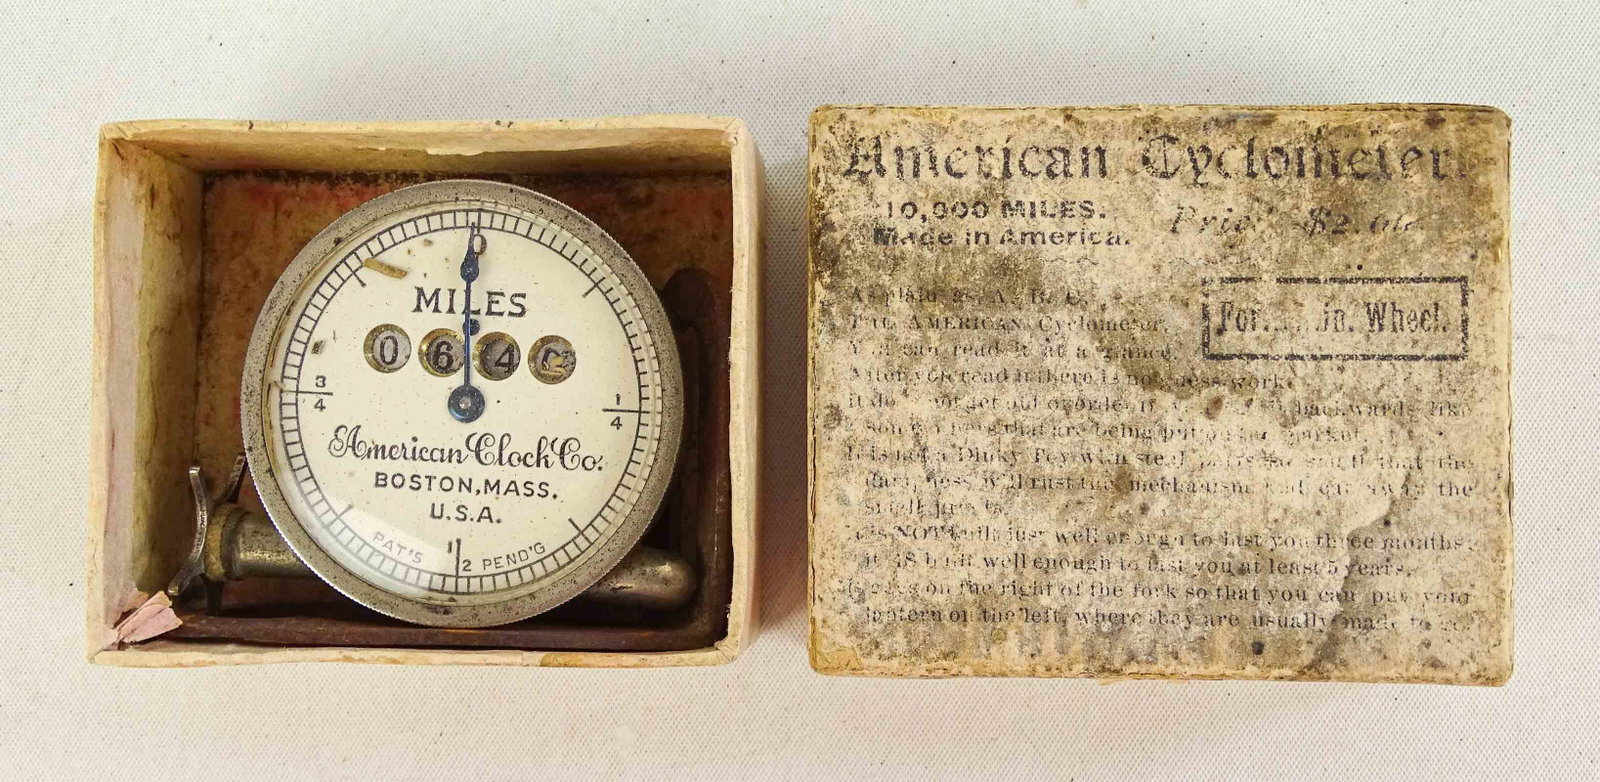 0
MILES
0 6 4
3/4
1/4
American Clock Co.
BOSTON, MASS.
U.S.A.
PAT'S 1/2 PEND'G
American Cyclometer
10,000 MILES.
Made in America.
Price $2.00
As plain as A. B. C.
For....in. Wheel.
The AMERICAN Cyclometer.
You can read it at a glance.
After you read it there is no guess work.
It does not get out of order if backwards like
some that are being put on the market.
It is not a Dinky Toy with steel parts so small that the
dampness will rust the mechanism and eat away the
small
It is NOT built just well enough to last you three months,
it is built well enough to last you at least 5 years.
on the right of the fork so that you can put your
lantern on the left, where they are usually made to go.